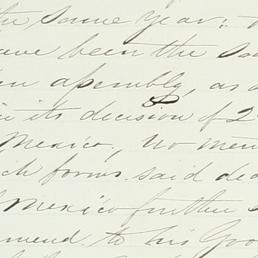 the same year;
have been the
assembly, as a
in its decision of 2
Mexico, no men
ch forms said dec
Mexico further
mend to his Gov